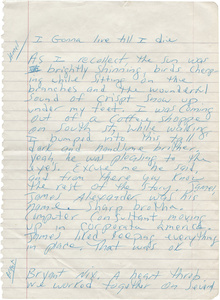 I Gonna live till I die
As I recollect, the sun was
brightly shinning, birds cherp
ing while sitting on the
branches and the wounderful
sound of Crispt snow up
under my feet. I was coming
out of a Coffee shoppe
on South st, while walking
I bumped into this tall,
dark and handsome brother
yeah he was pleasing to the
eyes. Excuse me he said
and from there you know
the rest of the story. James
James Alexander was his
name. Sharp brotha
Computer Consultant, moving
up in cooperate America,
James liked keeping everything
in place. That was ok
Bryant Nox. A heart throb
we worked together on